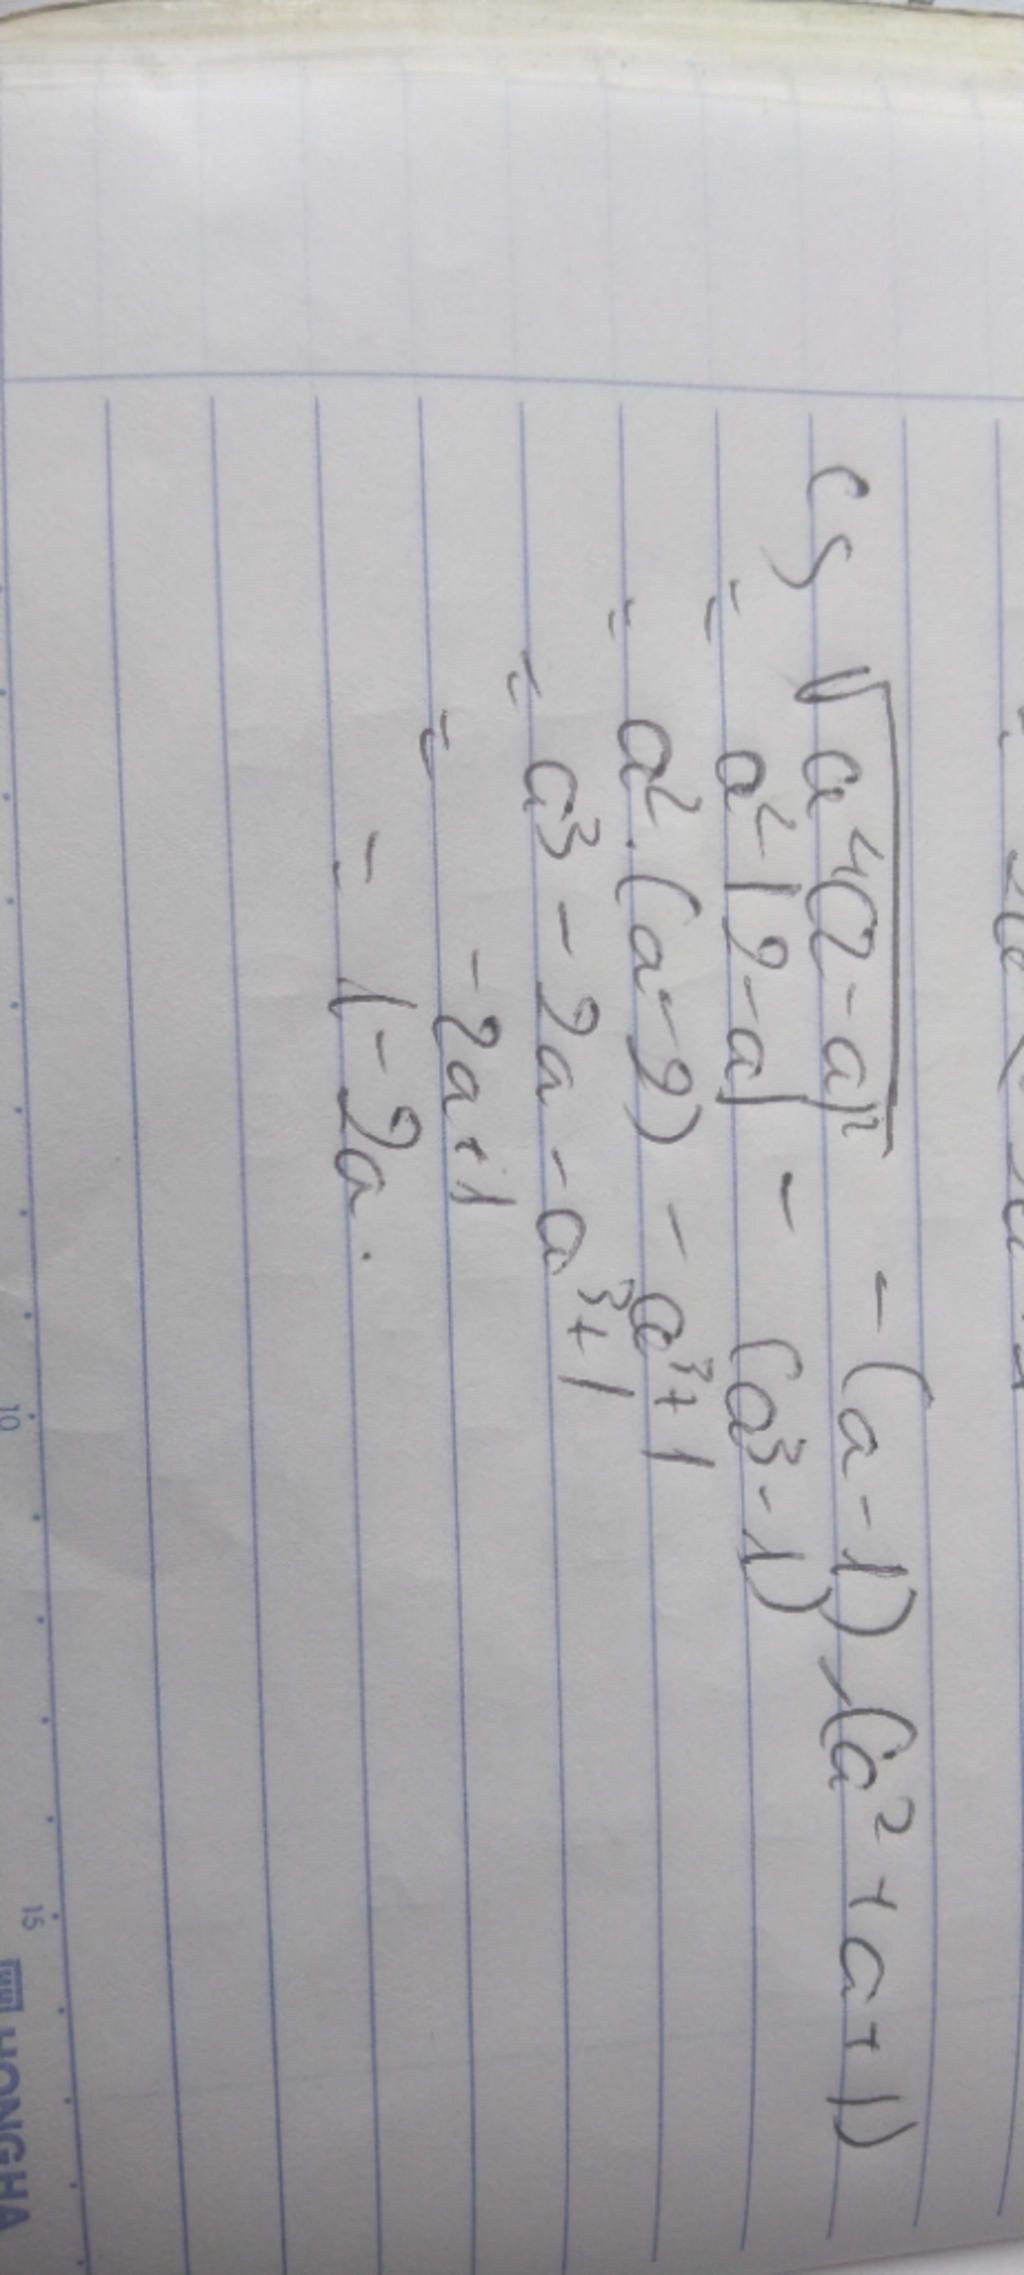 c) √a⁴(2-a)² - (a-1).(a²+a+1)
= a²-|2-a| - (a³-1)
= a².(a-2) - a³+1
= a³-2a-a³+1
= -2a+1
= 1-2a.
10
15
HONGHA